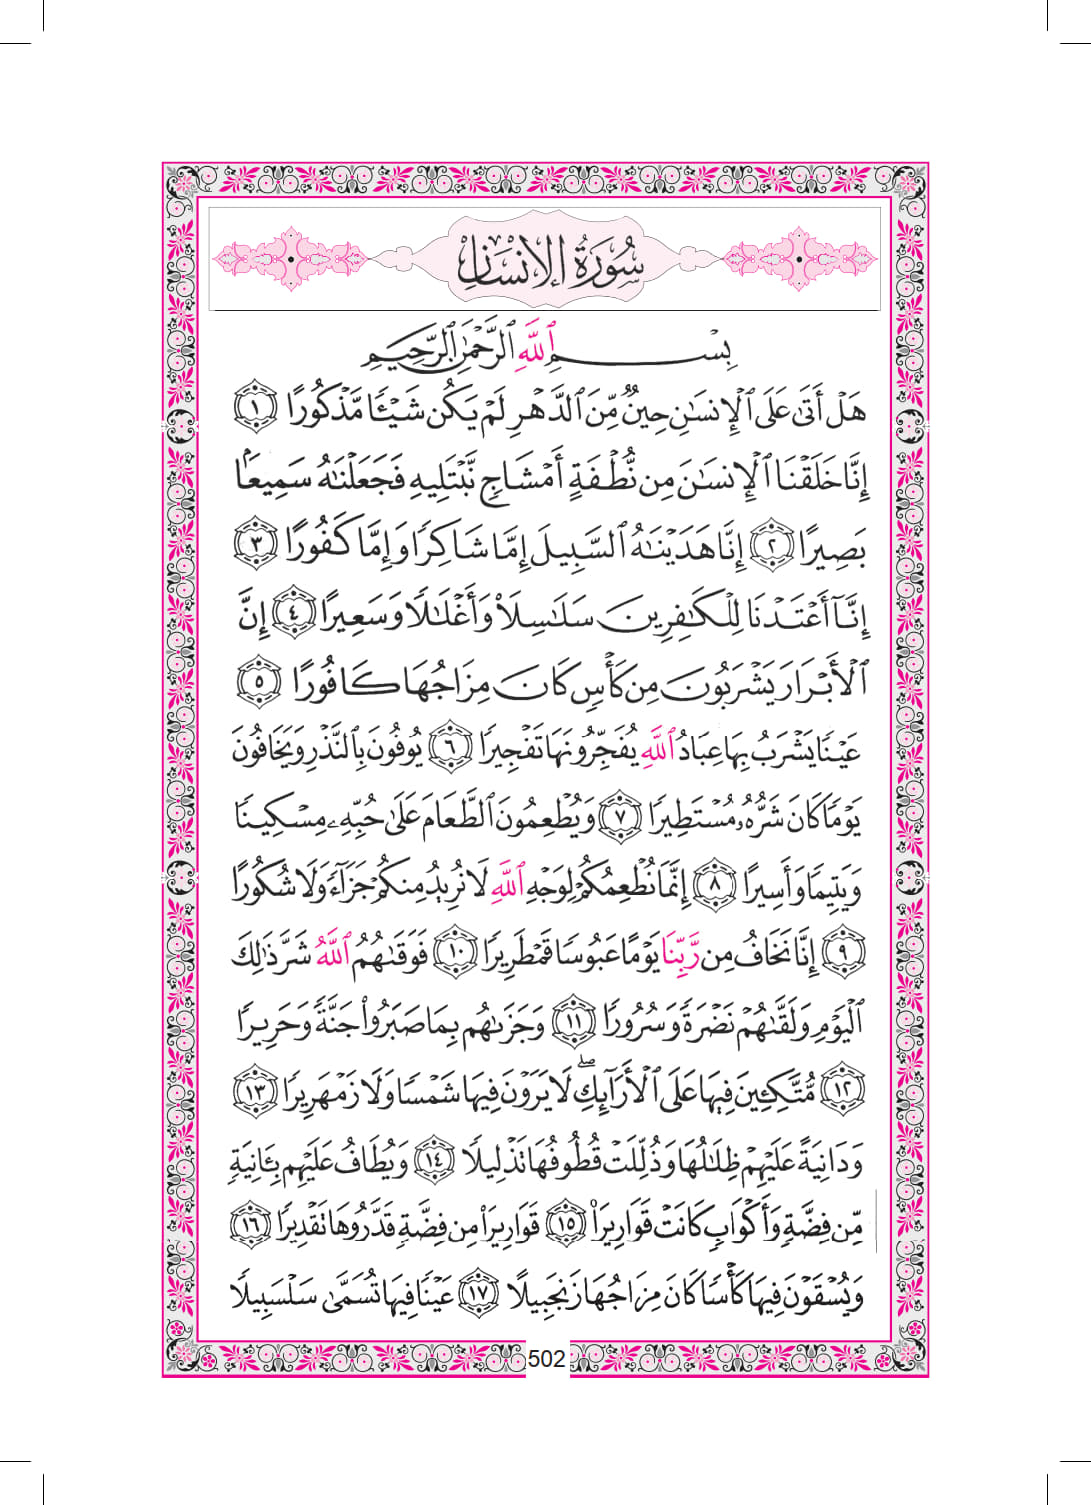 سُورَةُ الإِنْسَانِ
بِسْمِ ٱللَّهِ ٱلرَّحْمَٰنِ ٱلرَّحِيمِ
هَلْ أَتَىٰ عَلَى ٱلْإِنسَٰنِ حِينٌ مِّنَ ٱلدَّهْرِ لَمْ يَكُن شَيْـًٔا مَّذْكُورًا ۝١
إِنَّا خَلَقْنَا ٱلْإِنسَٰنَ مِن نُّطْفَةٍ أَمْشَاجٍ نَّبْتَلِيهِ فَجَعَلْنَٰهُ سَمِيعًۢا
بَصِيرًا ۝٢ إِنَّا هَدَيْنَٰهُ ٱلسَّبِيلَ إِمَّا شَاكِرًا وَإِمَّا كَفُورًا ۝٣
إِنَّآ أَعْتَدْنَا لِلْكَٰفِرِينَ سَلَٰسِلَا۟ وَأَغْلَٰلًا وَسَعِيرًا ۝٤ إِنَّ
ٱلْأَبْرَارَ يَشْرَبُونَ مِن كَأْسٍ كَانَ مِزَاجُهَا كَافُورًا ۝٥
عَيْنًا يَشْرَبُ بِهَا عِبَادُ ٱللَّهِ يُفَجِّرُونَهَا تَفْجِيرًا ۝٦ يُوفُونَ بِٱلنَّذْرِ وَيَخَافُونَ
يَوْمًا كَانَ شَرُّهُۥ مُسْتَطِيرًا ۝٧ وَيُطْعِمُونَ ٱلطَّعَامَ عَلَىٰ حُبِّهِۦ مِسْكِينًا
وَيَتِيمًا وَأَسِيرًا ۝٨ إِنَّمَا نُطْعِمُكُمْ لِوَجْهِ ٱللَّهِ لَا نُرِيدُ مِنكُمْ جَزَآءً وَلَا شُكُورًا
۝٩ إِنَّا نَخَافُ مِن رَّبِّنَا يَوْمًا عَبُوسًا قَمْطَرِيرًا ۝١٠ فَوَقَىٰهُمُ ٱللَّهُ شَرَّ ذَٰلِكَ
ٱلْيَوْمِ وَلَقَّىٰهُمْ نَضْرَةً وَسُرُورًا ۝١١ وَجَزَىٰهُم بِمَا صَبَرُوا۟ جَنَّةً وَحَرِيرًا
۝١٢ مُّتَّكِـِٔينَ فِيهَا عَلَى ٱلْأَرَآئِكِ ۖ لَا يَرَوْنَ فِيهَا شَمْسًا وَلَا زَمْهَرِيرًا ۝١٣
وَدَانِيَةً عَلَيْهِمْ ظِلَٰلُهَا وَذُلِّلَتْ قُطُوفُهَا تَذْلِيلًا ۝١٤ وَيُطَافُ عَلَيْهِم بِـَٔانِيَةٍ
مِّن فِضَّةٍ وَأَكْوَابٍ كَانَتْ قَوَارِيرَا۠ ۝١٥ قَوَارِيرَا۟ مِن فِضَّةٍ قَدَّرُوهَا تَقْدِيرًا ۝١٦
وَيُسْقَوْنَ فِيهَا كَأْسًا كَانَ مِزَاجُهَا زَنجَبِيلًا ۝١٧ عَيْنًا فِيهَا تُسَمَّىٰ سَلْسَبِيلًا
502